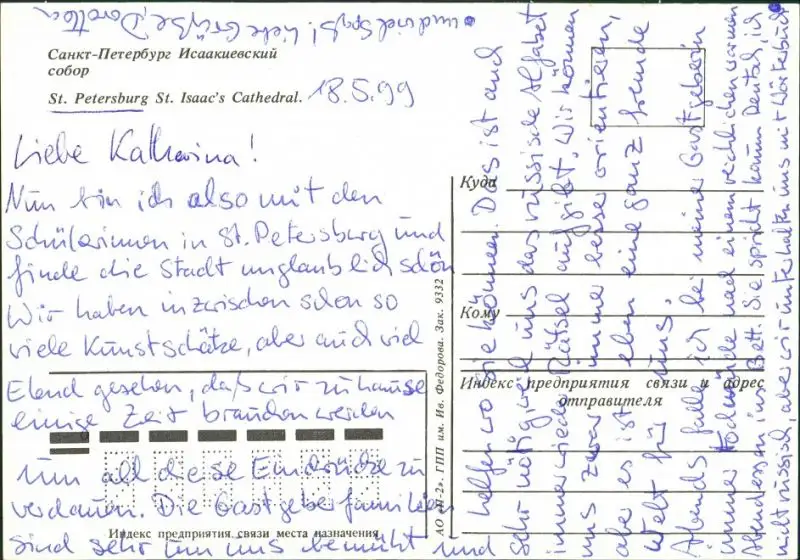 Санкт-Петербург Исаакиевский
собор
St. Petersburg St. Isaac's Cathedral. 18.5.99
Liebe Katharina!
Nun bin ich also mit den
Schülerinnen in St. Petersburg und
finde die Stadt unglaublich schön
Wir haben inzwischen schon so
viele Kunstschätze, aber auch viel
Elend gesehen, daß wir zuhause
einige Zeit brauchen werden
um all diese Eindrücke zu
verdauen. Die Gastgeberfamilien
sind sehr um uns bemüht und
helfen wo sie können. Das ist auch
sehr nötig, weil uns das russische Alfabet
immer wieder Rätsel aufgibt. Wir können
uns zwar immer besser orientieren,
aber es ist eben eine ganz fremde
Welt für uns.
Abends falle ich bei meiner Gastgeberin
immer todmüde nach einem reichlichen warmen
Abendessen ins Bett. Sie spricht kaum Deutsch, ich
nicht russisch, aber wir unterhalten uns mit Wörterbuch
und viel Spaß! Liebe Grüße, Dorothea
Куда
Кому
Индекс предприятия связи и адрес
отправителя
Индекс предприятия связи места назначения
АО «П-2». ГПП им. Ив. Федорова. Зак. 9332